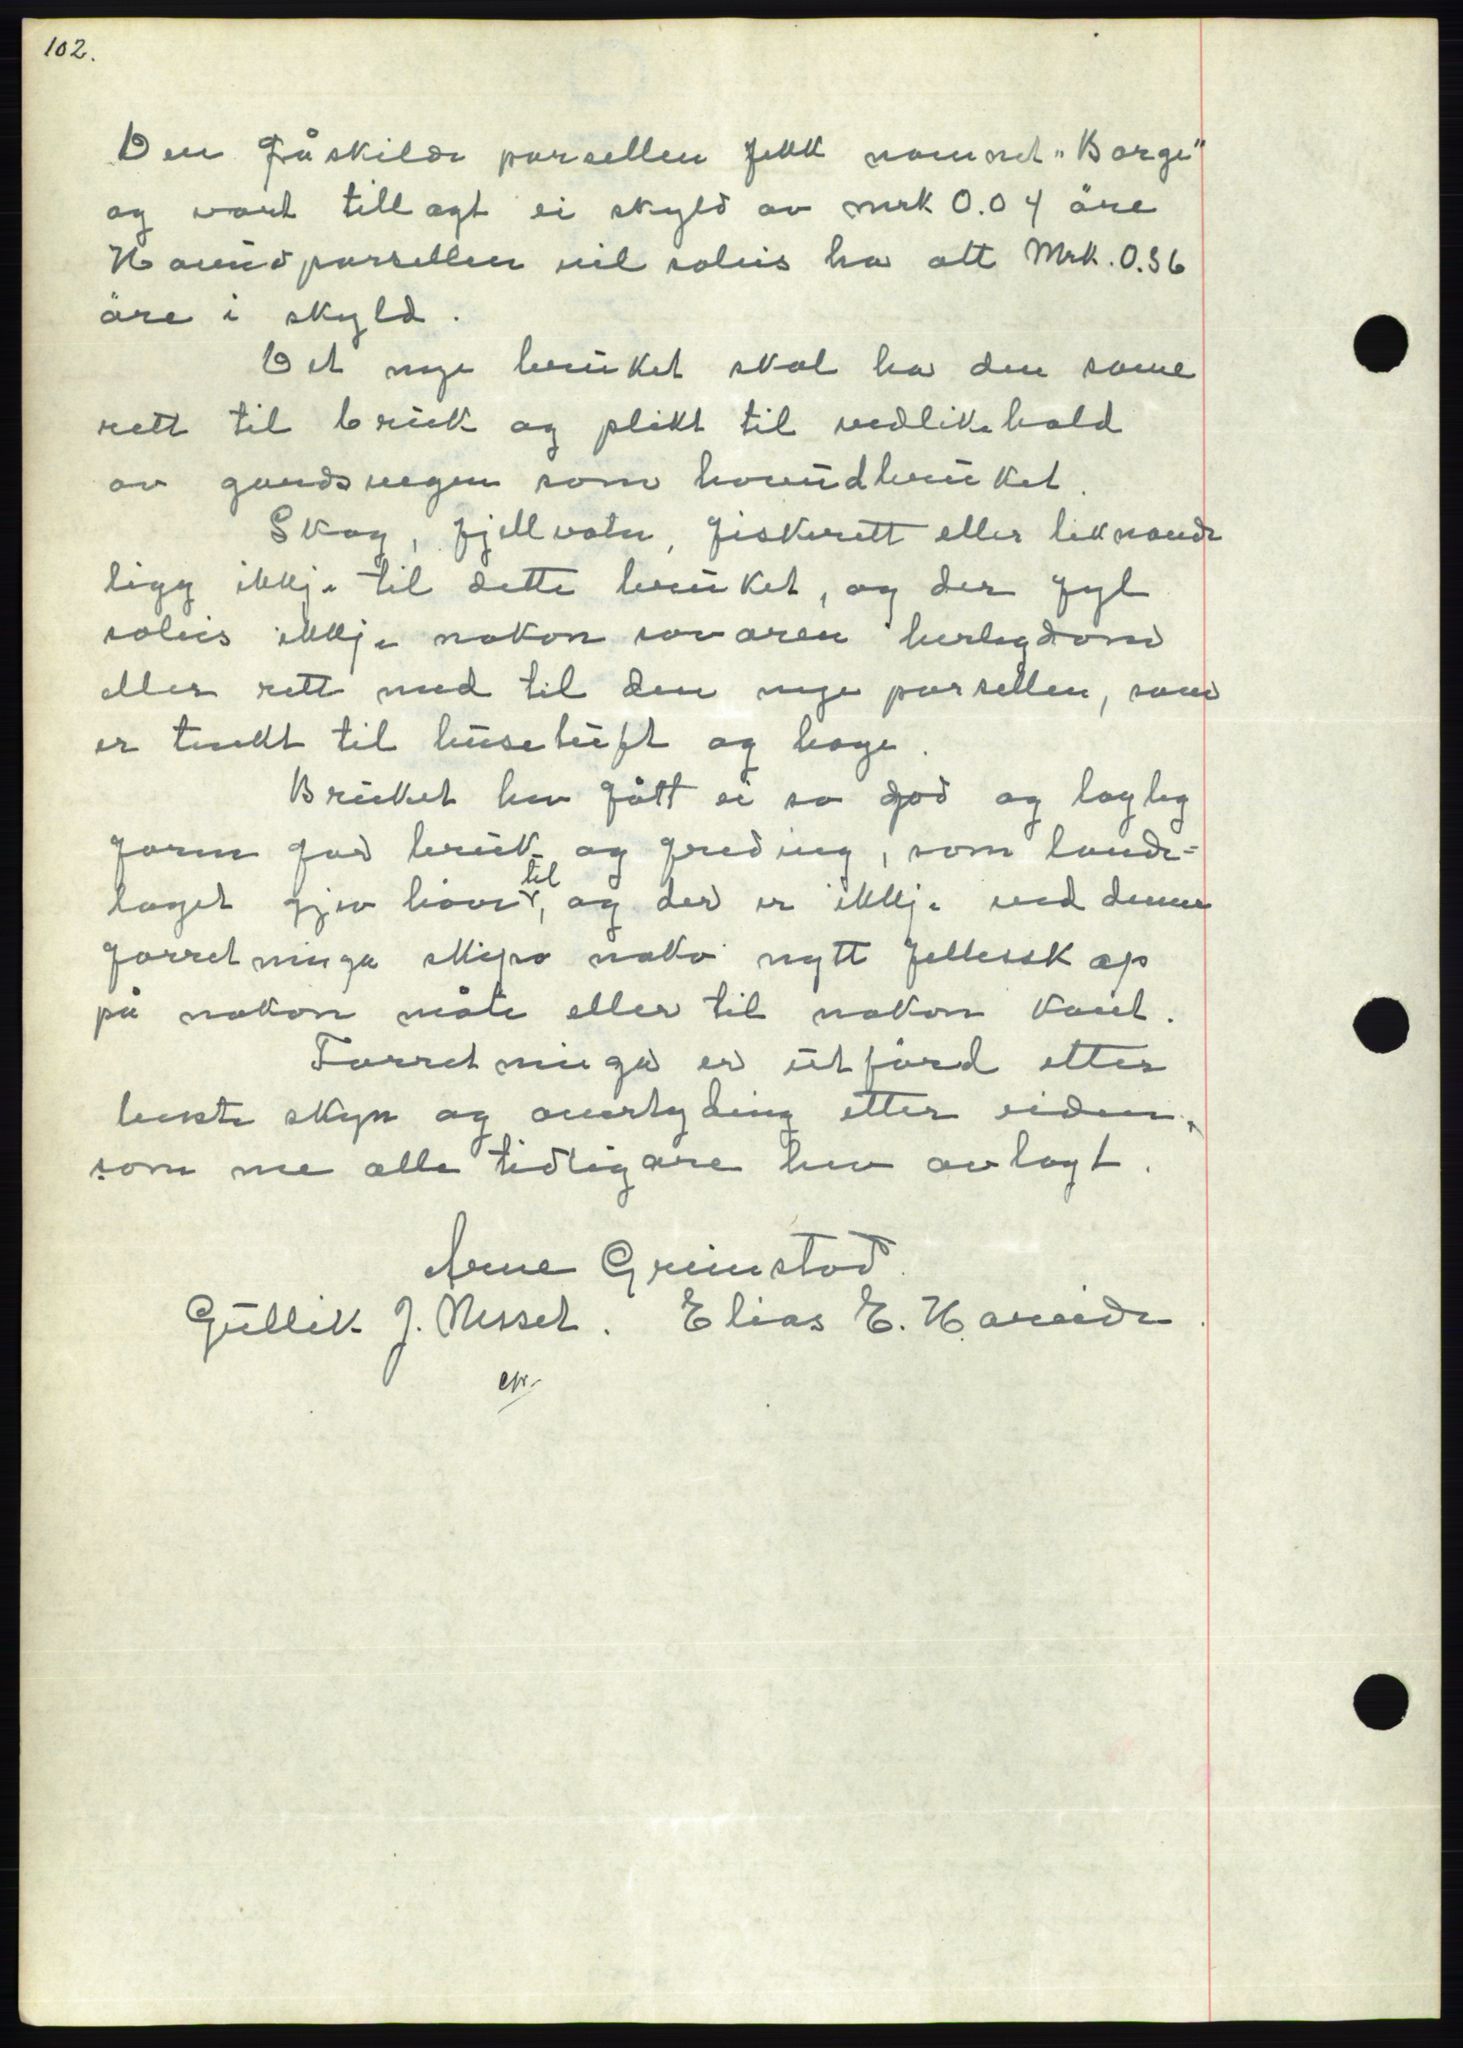 102.
Den fråskilde parsellen fekk namnet „Borge"
og vart tillagt ei skyld av mrk 0.04 öre
Hovudparsellen vil soleis ha att Mrk. 0.36
öre i skyld.
Det nye bruket skal ha den same
rett til bruk og plikt til vedlikehald
av gardsvegen som hovudbruket.
Skog, fjellvatn, fiskerett eller liknande
ligg ikkje til dette bruket, og der fyl
soleis ikkje nokon sovoren herlegdom
eller rett med til den nye parsellen, som
er tenkt til husetuft og hage.
Bruket hev fått ei so god og lagleg
form for bruk og freding, som lende=
laget gjev høve til, og der er ikkje ved denne
forretninga skipa noko nytt fellesskap
på nokon måte eller til nokon kant.
Forretninga er utförd etter
beste skyn og overtyding etter eiden,
som me alle tidligare hev avlagt.
Arne Grimstad.
Gullik J. Nesset. Elias E. Hareide.